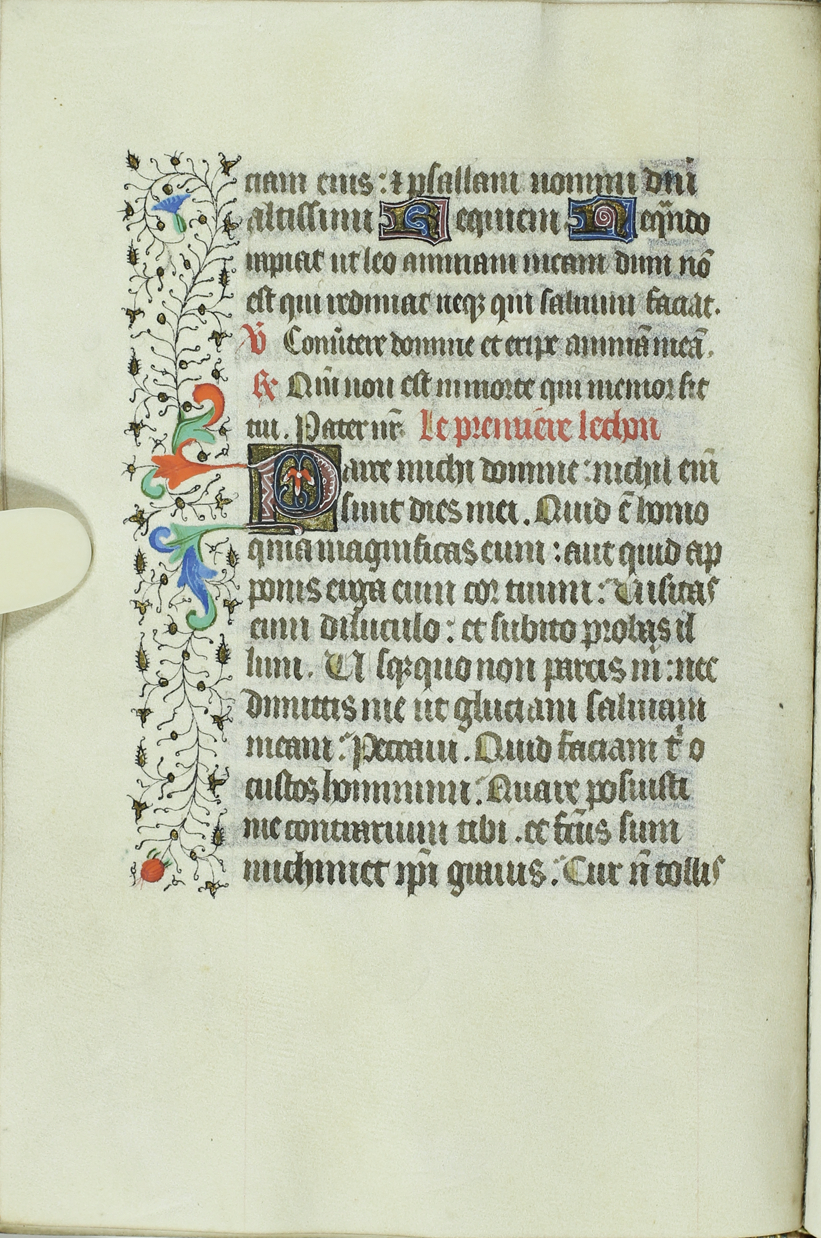 ciam eius : ⁊ psallam nomini dn̄i
altissimi Requiem Neqn̄do
rapiat ut leo animam meam dum nō
est qui redimat neqꝫ qui saluum faciat.
℣ Conu̾tere domine et eripe animā meā.
℟ Qm̄ non est in morte qui memor sit
tui. Pater nr̄ Le premiere lechon
Parce michi domine : nichil em̄
sunt dies mei. Quid ē homo
quia magnificas eum : aut quid ap
ponis erga eum cor tuum : Uisitas
eum diluculo : et subito probas il
lum. Usqꝫ quo non parcis m̄ : nec
dimittis me ut gluciam saliuam
meam : Peccaui. Quid faciam t' o
custos hominum. Quare posuisti
me contrarium tibi. et fc̄us sum
michimet ip̄i grauis. Cur n̄ tollis